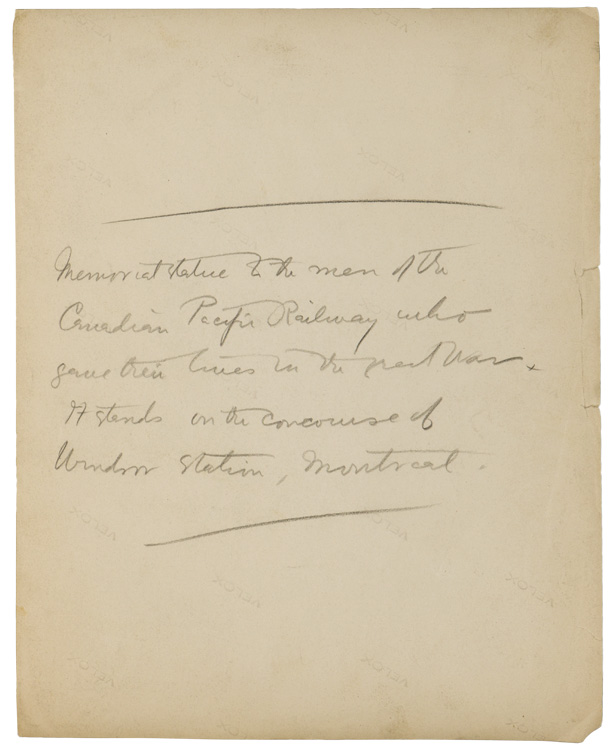 Memorial statue to the men of the
Canadian Pacific Railway who
gave their lives in the great War.
It stands on the concourse of
Windsor Station, Montreal.
VELOX
VELOX
VELOX
VELOX
VELOX
VELOX
VELOX
VELOX
VELOX
VELOX